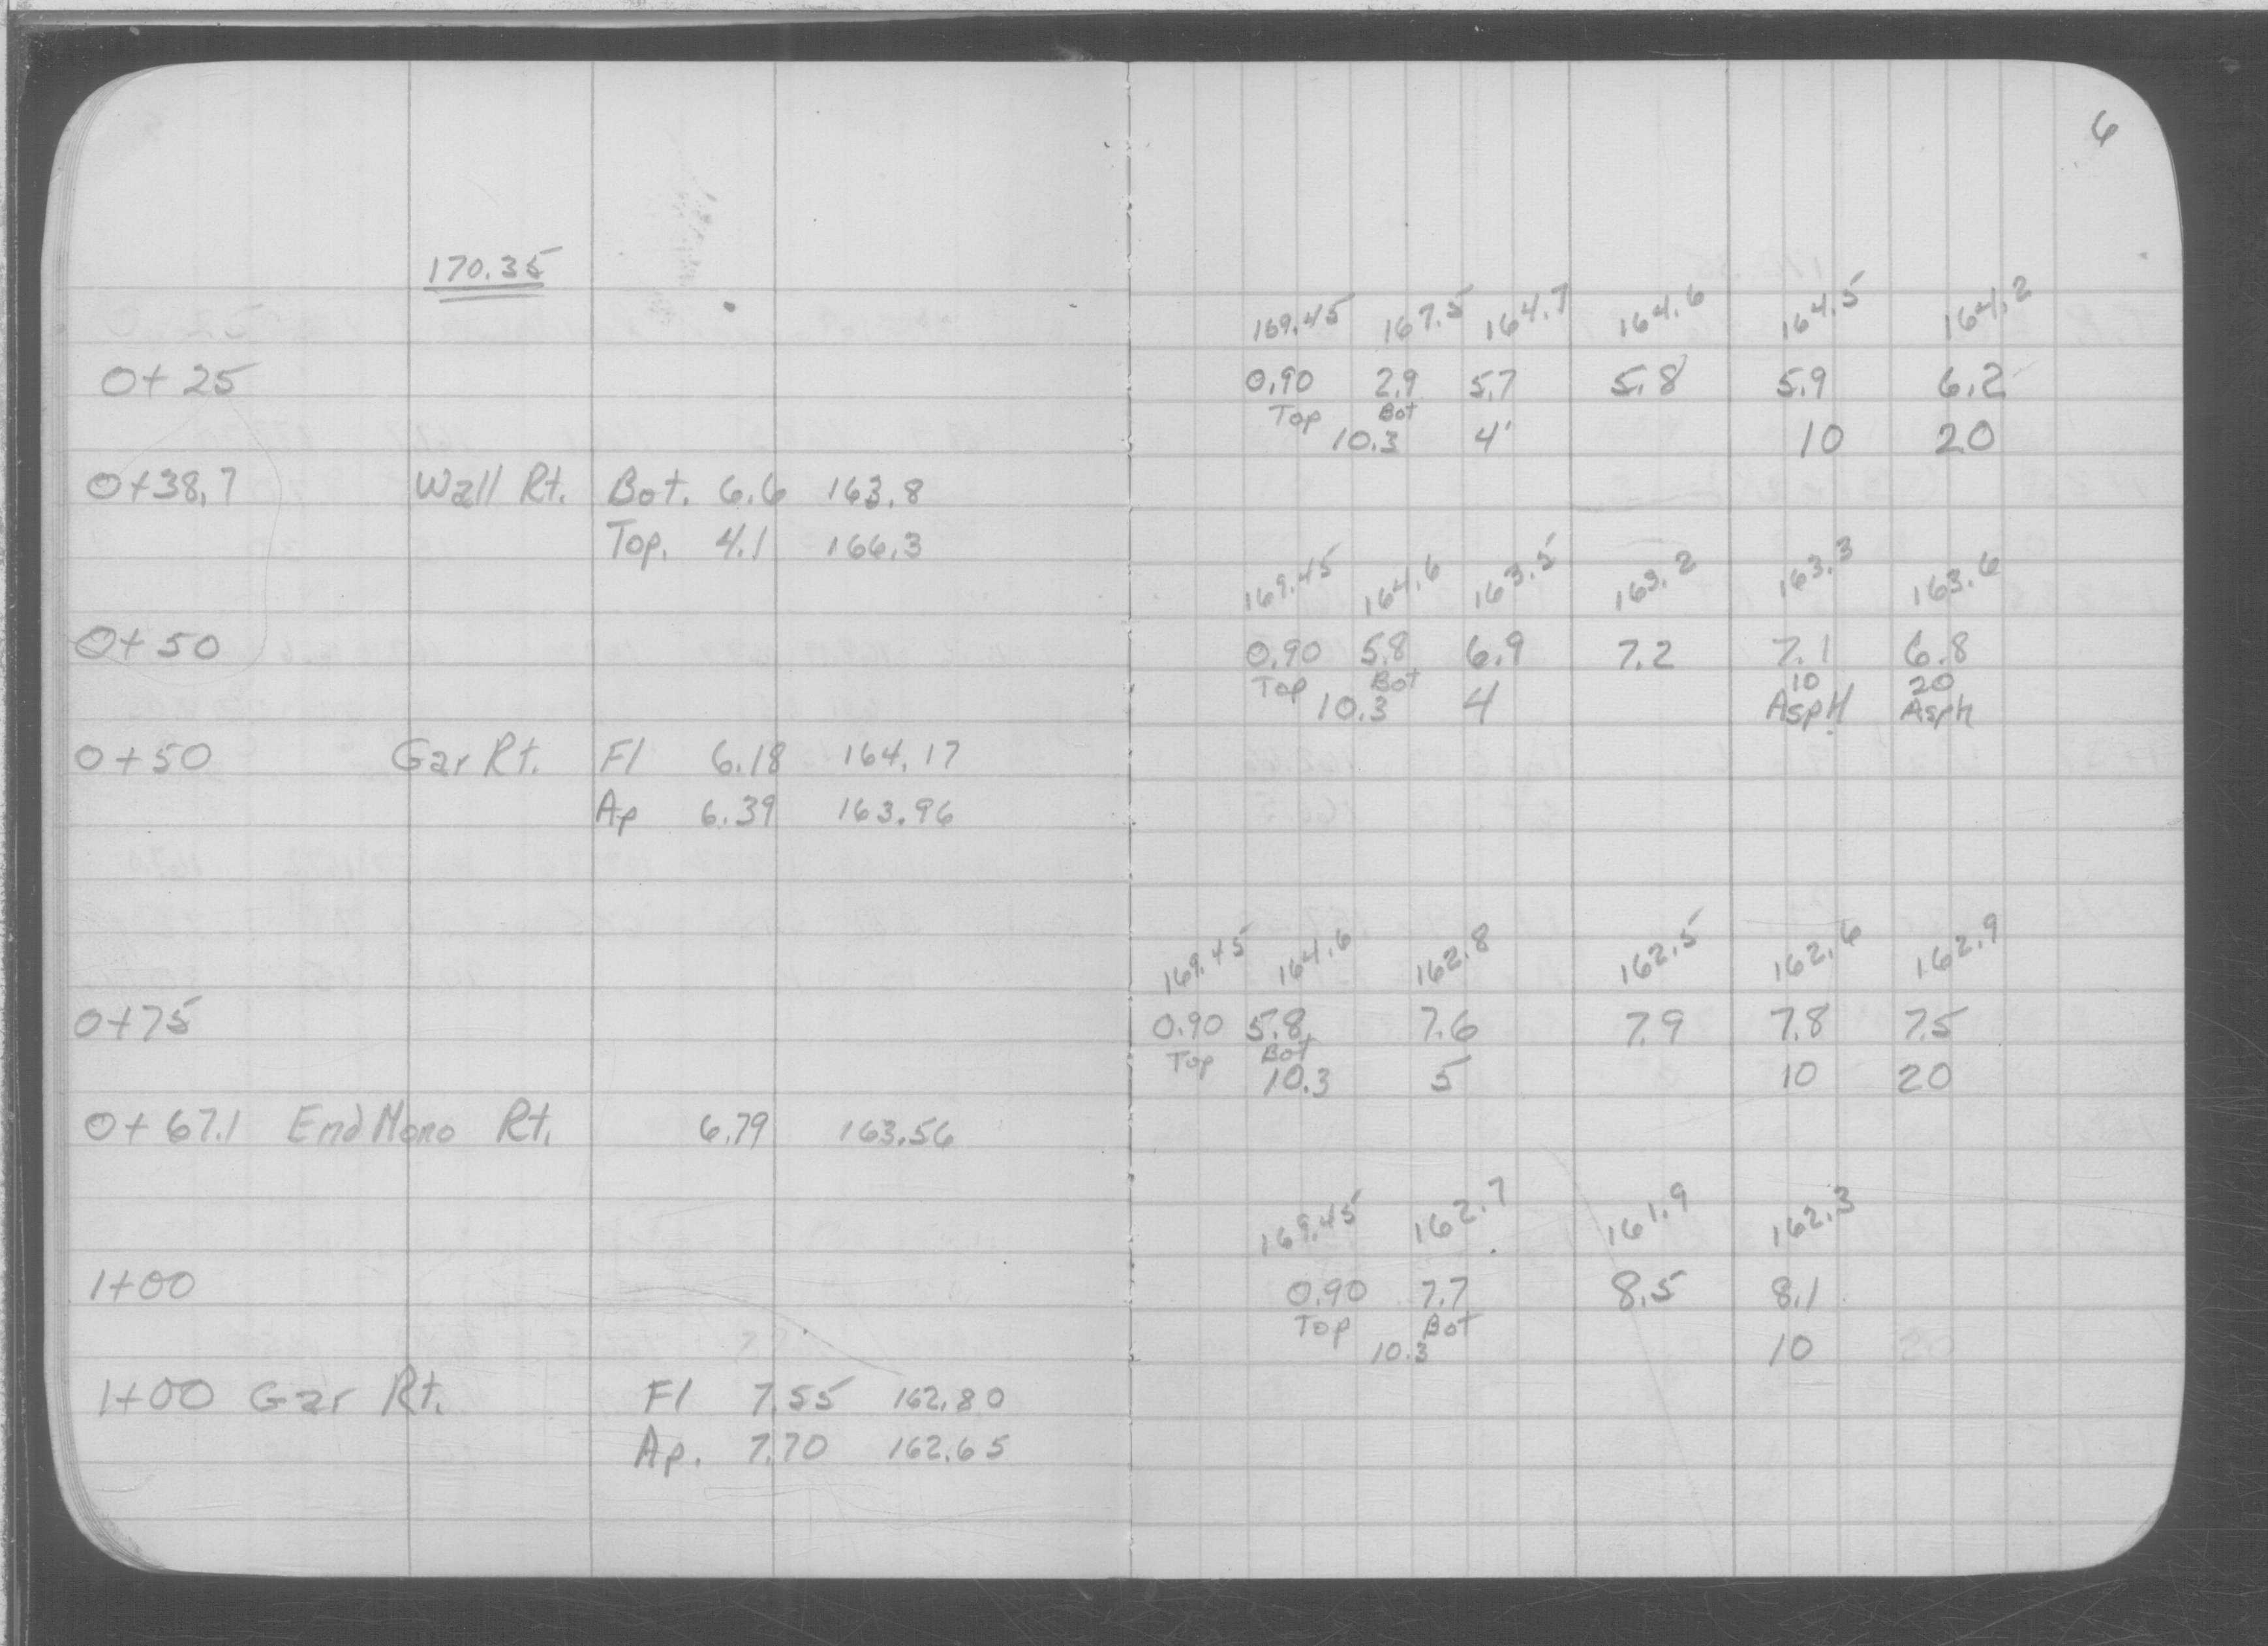 6
170.35
169.45 167.5 164.7 164.6 164.5 164.2
0+25 0.90 2.9 5.7 5.8 5.9 6.2
Top Bot
10.3 4' 10 20
0+38.7 Wall Rt. Bot. 6.6 163.8
Top. 4.1 166.3
169.45 164.6 163.5 163.2 163.3 163.6
0+50 0.90 5.8 6.9 7.2 7.1 6.8
Top Bot 10 20
10.3 4 Asph Asph
0+50 Gar Rt. Fl 6.18 164.17
Ap 6.39 163.96
169.45 164.6 162.8 162.5 162.6 162.9
0+75 0.90 5.8 7.6 7.9 7.8 7.5
Top Bot
10.3 5 10 20
0+67.1 End Mono Rt. 6.79 163.56
169.45 162.7 161.9 162.3
1+00 0.90 7.7 8.5 8.1
Top Bot
10.3 10 20
1+00 Gar Rt. Fl 7.55 162.80
Ap. 7.70 162.65